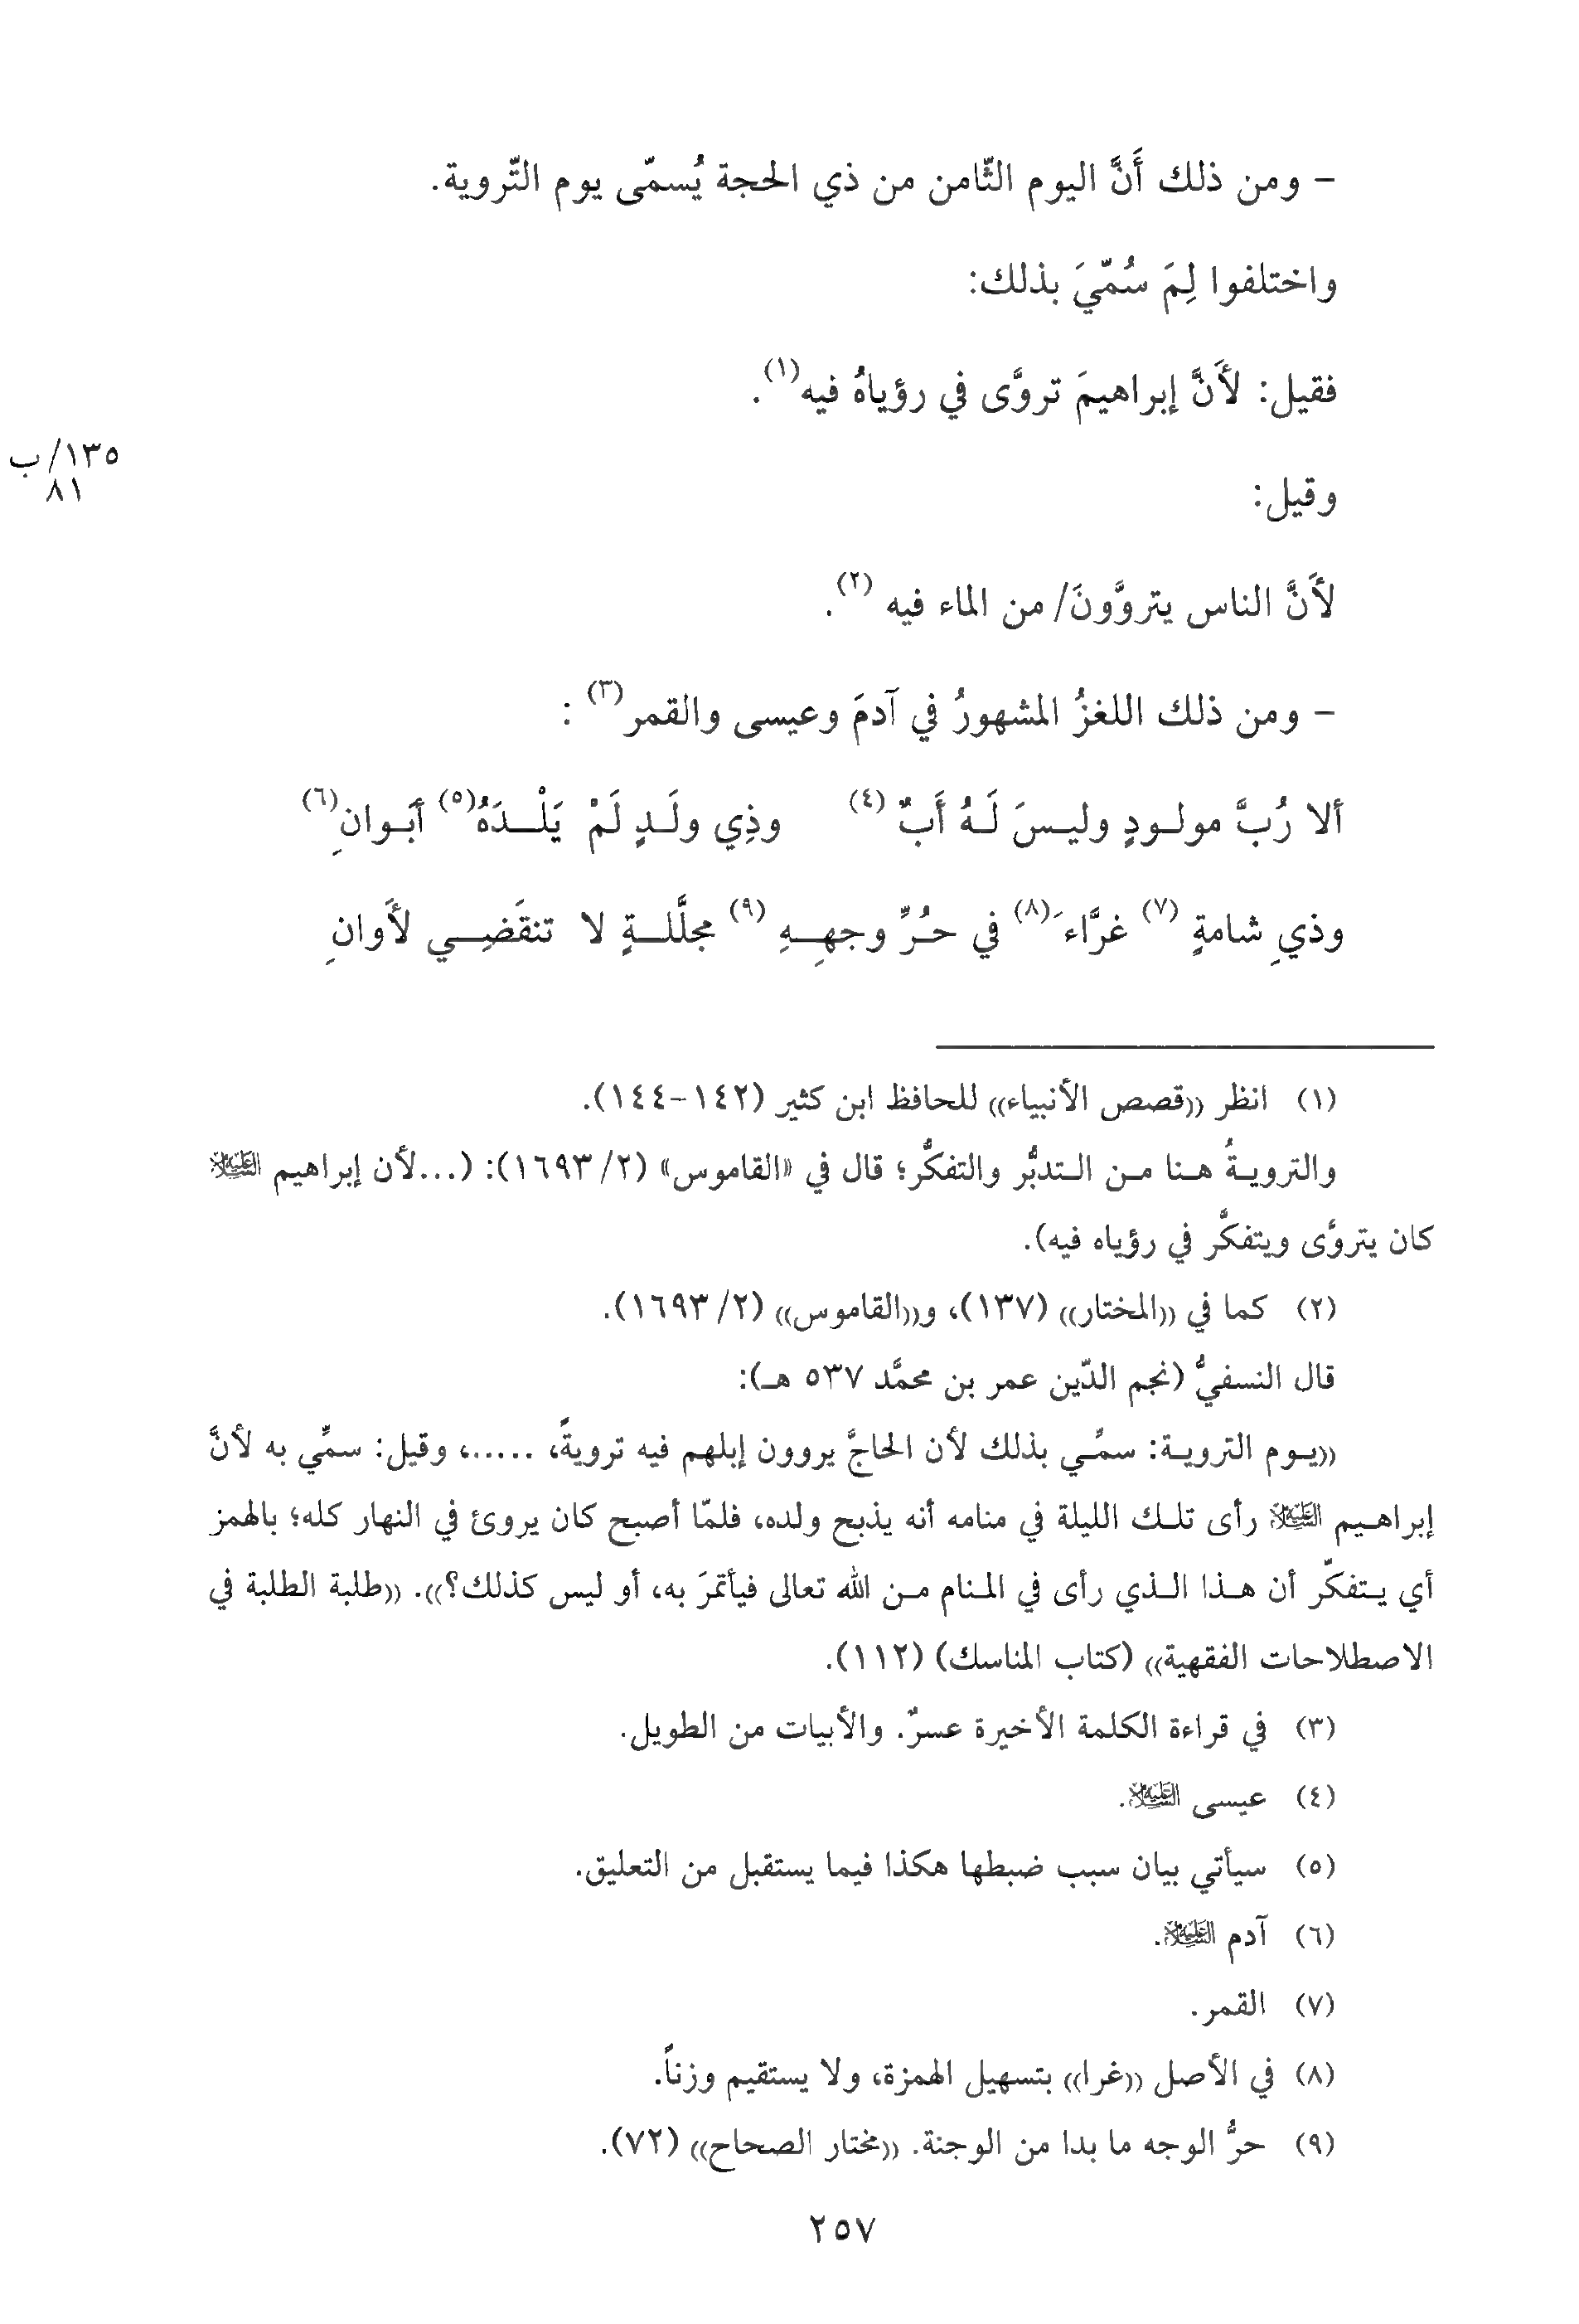 - ومن ذلك أَنَّ اليوم الثّامن من ذي الحجة يُسمّى يوم التّروية.
واختلفوا لِمَ سُمّيَ بذلك:
فقيل: لأَنَّ إبراهيمَ تروَّى في رؤياهُ فيه(١).
١٣٥/ ب
٨١
وقيل:
لأَنَّ الناس يتروَّونَ/ من الماء فيه (٢).
- ومن ذلك اللغزُ المشهورُ في آدمَ وعيسى والقمر(٣) :
ألا رُبَّ مولـودٍ وليـسَ لَـهُ أَبٌ (٤) وذِي ولَـدٍ لَمْ يَلْـــدَهُ(٥) أبَـوانِ(٦)
وذيِ شامةٍ (٧) غرَّاءَ(٨) في حـُرِّ وجهِـــهِ (٩) مجلَّلـــةٍ لا تنقَضِـــي لأَوانِ
(١) انظر ((قصص الأنبياء)) للحافظ ابن كثير (١٤٢-١٤٤).
والترويـةُ هـنا مـن الـتدبُّر والتفكُّر؛ قال في «القاموس» (٢/ ١٦٩٣): (...لأن إبراهيم عليه السلام
كان يتروَّى ويتفكَّر في رؤياه فيه).
(٢) كما في ((المختار)) (١٣٧)، و((القاموس)) (٢/ ١٦٩٣).
قال النسفيُّ (نجم الدّين عمر بن محمَّد ٥٣٧ هـ):
((يـوم الترويـة: سمِّـي بذلك لأن الحاجَّ يروون إبلهم فيه ترويةً، .....، وقيل: سمِّي به لأنَّ
إبراهـيم عليه السلام رأى تلـك الليلة في منامه أنه يذبح ولده، فلمّا أصبح كان يروئ في النهار كله؛ بالهمز
أي يـتفكّر أن هـذا الـذي رأى في المـنام مـن الله تعالى فيأتمرَ به، أو ليس كذلك؟)). ((طلبة الطلبة في
الاصطلاحات الفقهية)) (كتاب المناسك) (١١٢).
(٣) في قراءة الكلمة الأخيرة عسرٌ. والأبيات من الطويل.
(٤) عيسى عليه السلام.
(٥) سيأتي بيان سبب ضبطها هكذا فيما يستقبل من التعليق.
(٦) آدم عليه السلام.
(٧) القمر.
(٨) في الأصل ((غرا)) بتسهيل الهمزة، ولا يستقيم وزناً.
(٩) حرُّ الوجه ما بدا من الوجنة. ((مختار الصحاح)) (٧٢).
٢٥٧